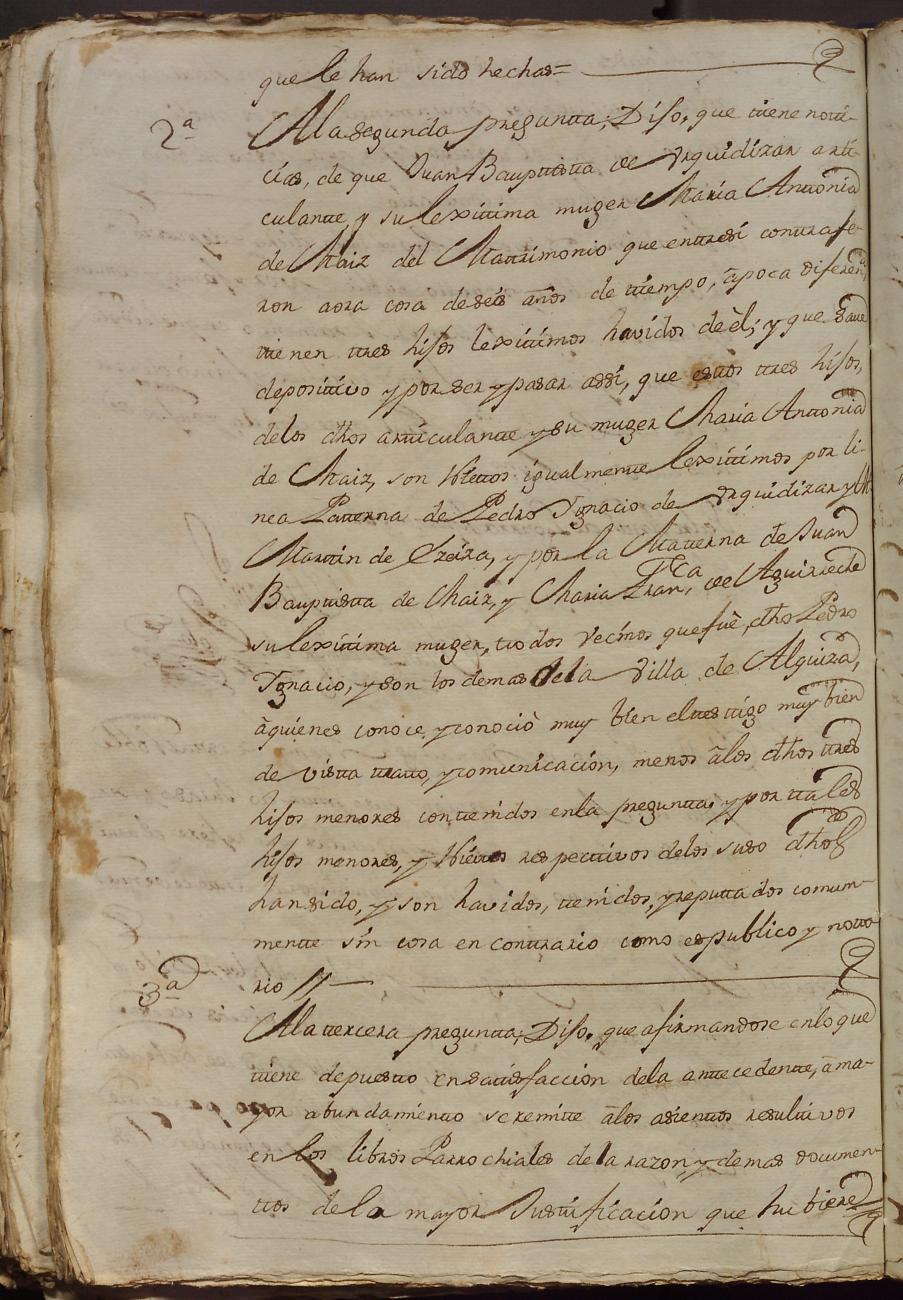 que le han sido hechas=
2ª
A la segunda pregunta; Dijo, que tiene noti-
cias, de que Juan Bauptista de Urquidizar arti-
culante y su lexitima muger Maria Antonia
de Maiz del Matrimonio que entresi contraje-
ron aora cosa de seis años de tiempo, ápoca diferenª,
tienen tres hijos lexitimos havidos de èl; y que save
depositivo y por ser y pasar assi, que estos tres hijos,
de los dhos articulante y su muger Maria Antonia
de Maiz, son Nietos igualmente lexitimos por li-
nea Paterna de Pedro Ignacio de Urquidizar y Mª
Martin de Ezeiza, y por la Materna de Juan
Bauptista de Maiz, y Maria Franca de Aguirreche
su lexitima muger, todos vecinos que fuè, dho Pedro
Ignacio, y son los demas de la Villa de Alquiza,
àquienes conoce, y conociò muy bien el testigo muy bien
de vista trato, y comunicacion, menos àlos dhos tres
hijos menores contenidos en la pregunta; y por tales
hijos menores, y Nietos respectivos delos suso dhos
han sido, y son havidos, tenidos, y reputtados comun-
mente sin cosa en contrario como es publico y noto-
rio //
3ª
A la tercera pregunta; Dijo, que afirmandose en lo que
tiene depuesto en satisfaccion dela antecedente, àma-
yor abundamiento se remite àlos asientos resultivos
en los libros Parrochiales de la razon y demas documen-
tos de la mayor Justificacion que hubiere